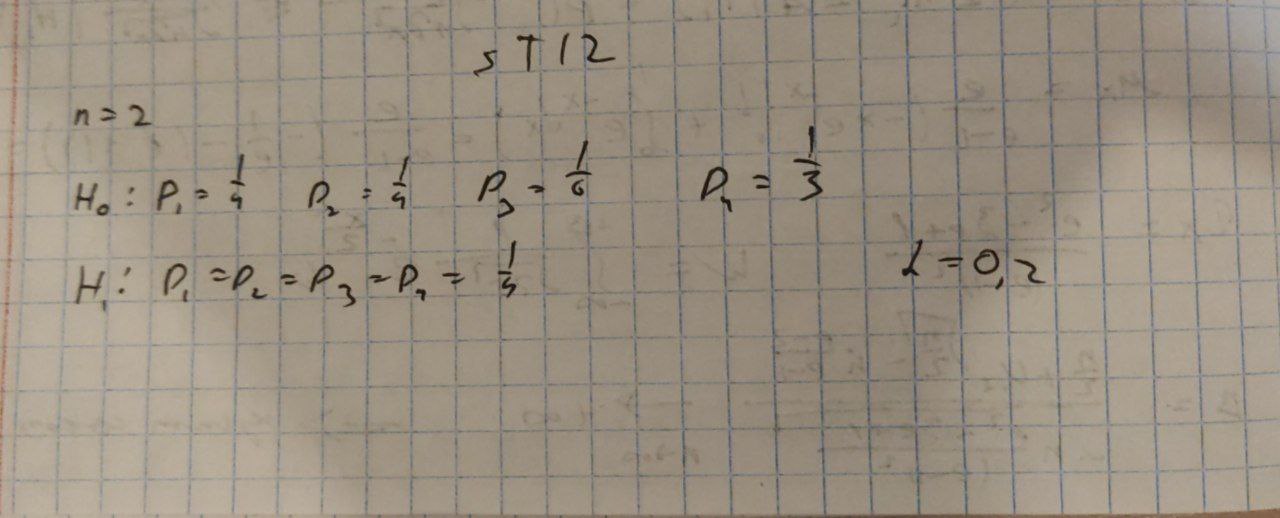 ST12
n = 2
H₀: P₁ = 1/4 P₂ = 1/4 P₃ = 1/6 P₄ = 1/3
H₁: P₁ = P₂ = P₃ = P₄ = 1/4
α = 0,2